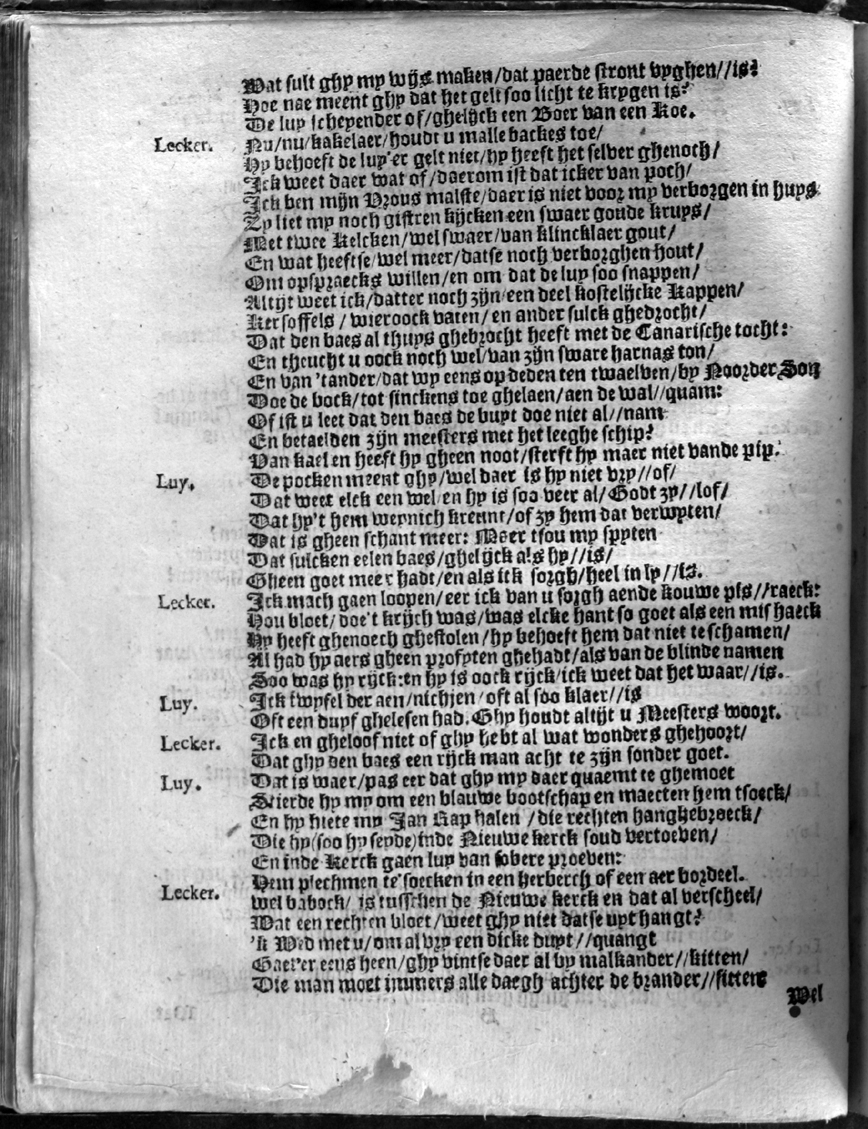 Wat sult ghy my wijs maken/dat paerde stront vyghen//is?
Hoe nae meent ghy dat het gelt soo licht te krygen is?
De luy schepender of/ghelijck een Boer van een Koe.
Lecker. Nu/nu/kakelaer/houdt u malle backes toe/
Hy behoeft de luy'er gelt niet/hy heeft het selver ghenoch/
Ick weet daer wat of/daerom ist dat icker van poch/
Ick ben mijn Vrous malste/daer is niet voor my verborgen in huys
Zy liet my noch gistren kijcken een swaer goude kruys/
Met twee Kelcken/wel swaer/van klincklaer gout/
En wat heeftse/wel meer/datse noch verborghen hout/
Om opspraecks willen/en om dat de luy soo snappen/
Altijt weet ick/datter noch zijn een deel kostelijcke Kappen/
Kersoffels / wieroock vaten/ en ander sulck ghedrocht/
Dat den baes al thuys ghebrocht heeft met de Canarische tocht:
En theucht u oock noch wel/van zijn sware harnas ton/
En van 'tander/dat wy eens opdeden ten twaelven/by Noorder Son
Doe de bock/tot sinckens toe ghelaen/aen de wal//quam:
Of ist u leet dat den baes de buyt doe niet al//nam
En betaelden zijn meesters met het leeghe schip?
Van kael en heeft hy gheen noot/sterft hy maer niet vande pip.
Luy. De pocken meent ghy/wel daer is hy niet vry//of/
Dat weet elck een wel/en hy is soo veer al/Godt zy//lof/
Dat hy't hem weynich kreunt/of zy hem dat verwyten/
Wat is gheen schant meer: Maer tsou my spyten
Dat sulcken eelen baes/ghelijck als hy//is/
Gheen goet meer hadt/en als ick sorgh/heel in ly//is.
Lecker. Ick mach gaen loopen/eer ick van u sorgh aende kouwe pis//raeck:
Hou bloet/doe't krijch was/was elcke hant so goet als een mis haeck
Hy heeft ghenoech ghestolen/hy behoeft hem dat niet te schamen/
Al had hy aers gheen profyten ghehadt/als van de blinde namen
Soo was hy rijck:en hy is oock rijck/ick weet dat het waar//is.
Luy. Ick twyfel der aen/nichjen/oft al soo klaer//is
Oft een duyf ghelesen had. Ghy houdt altijt u Meesters woort.
Lecker. Ick en gheloof niet of ghy hebt al wat wonders ghehoort/
Dat ghy den baes een rijck man acht te zijn sonder goet.
Luy. Dat is waer/pas eer dat ghy my daer quaemt te ghemoet
Stierde hy my om een blauwe bootschap en maecten hem tsoeck/
En hy hiete my Jan Gap halen /die rechten hanghebroeck/
Die hy(soo hy seyde)inde Nieuwe kerck soud vertoeven/
En inde Kerck gaen luy van sobere proeven:
Hem plechmen te soecken in een herberch of een aer bordeel.
Lecker. Wel babock/ is tusschen de Nieuwe kerck en dat al verscheel/
Wat een rechten bloet/weet ghy niet datse uyt hangt?
'k Wed met u/om al vry een dicke duyt //quangt
Gaet'er eens heen/ghy vintse daer al by malkander//kitten/
Die man moet immers alle daegh achter de brander//sitten
Wel